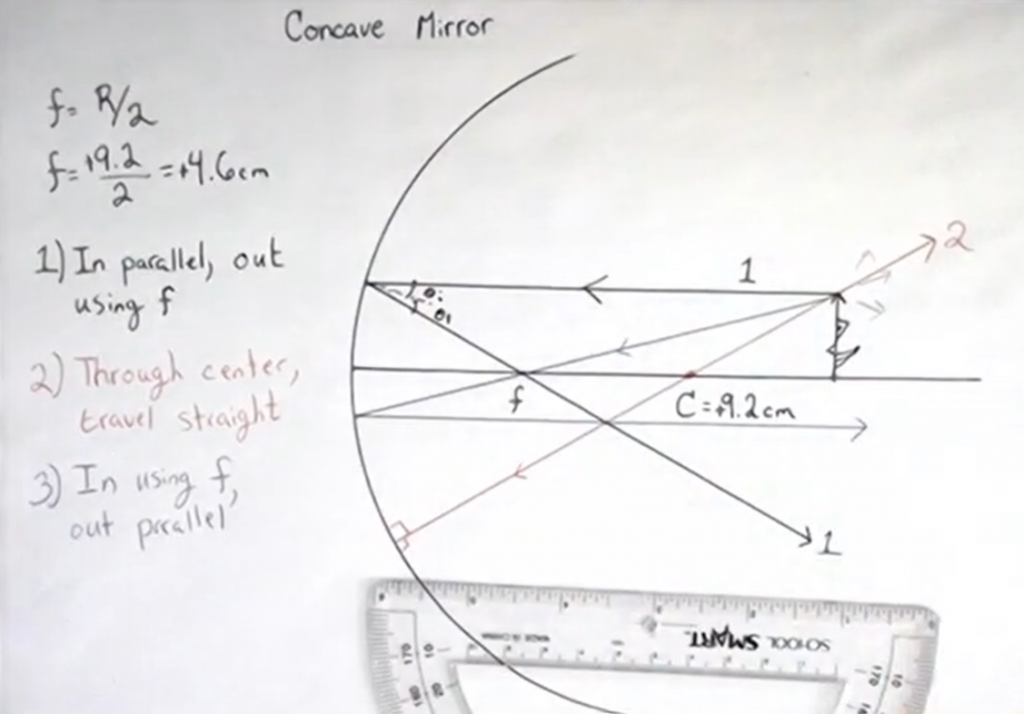 Concave Mirror
f= R/2
f= +9.2/2 = +4.6cm
1) In parallel, out
using f
2) Through center,
travel straight
3) In using f,
out prallel
1
2
θi
θr
f
C=+9.2cm
1
SCHOOL SMART
170
10
170
10